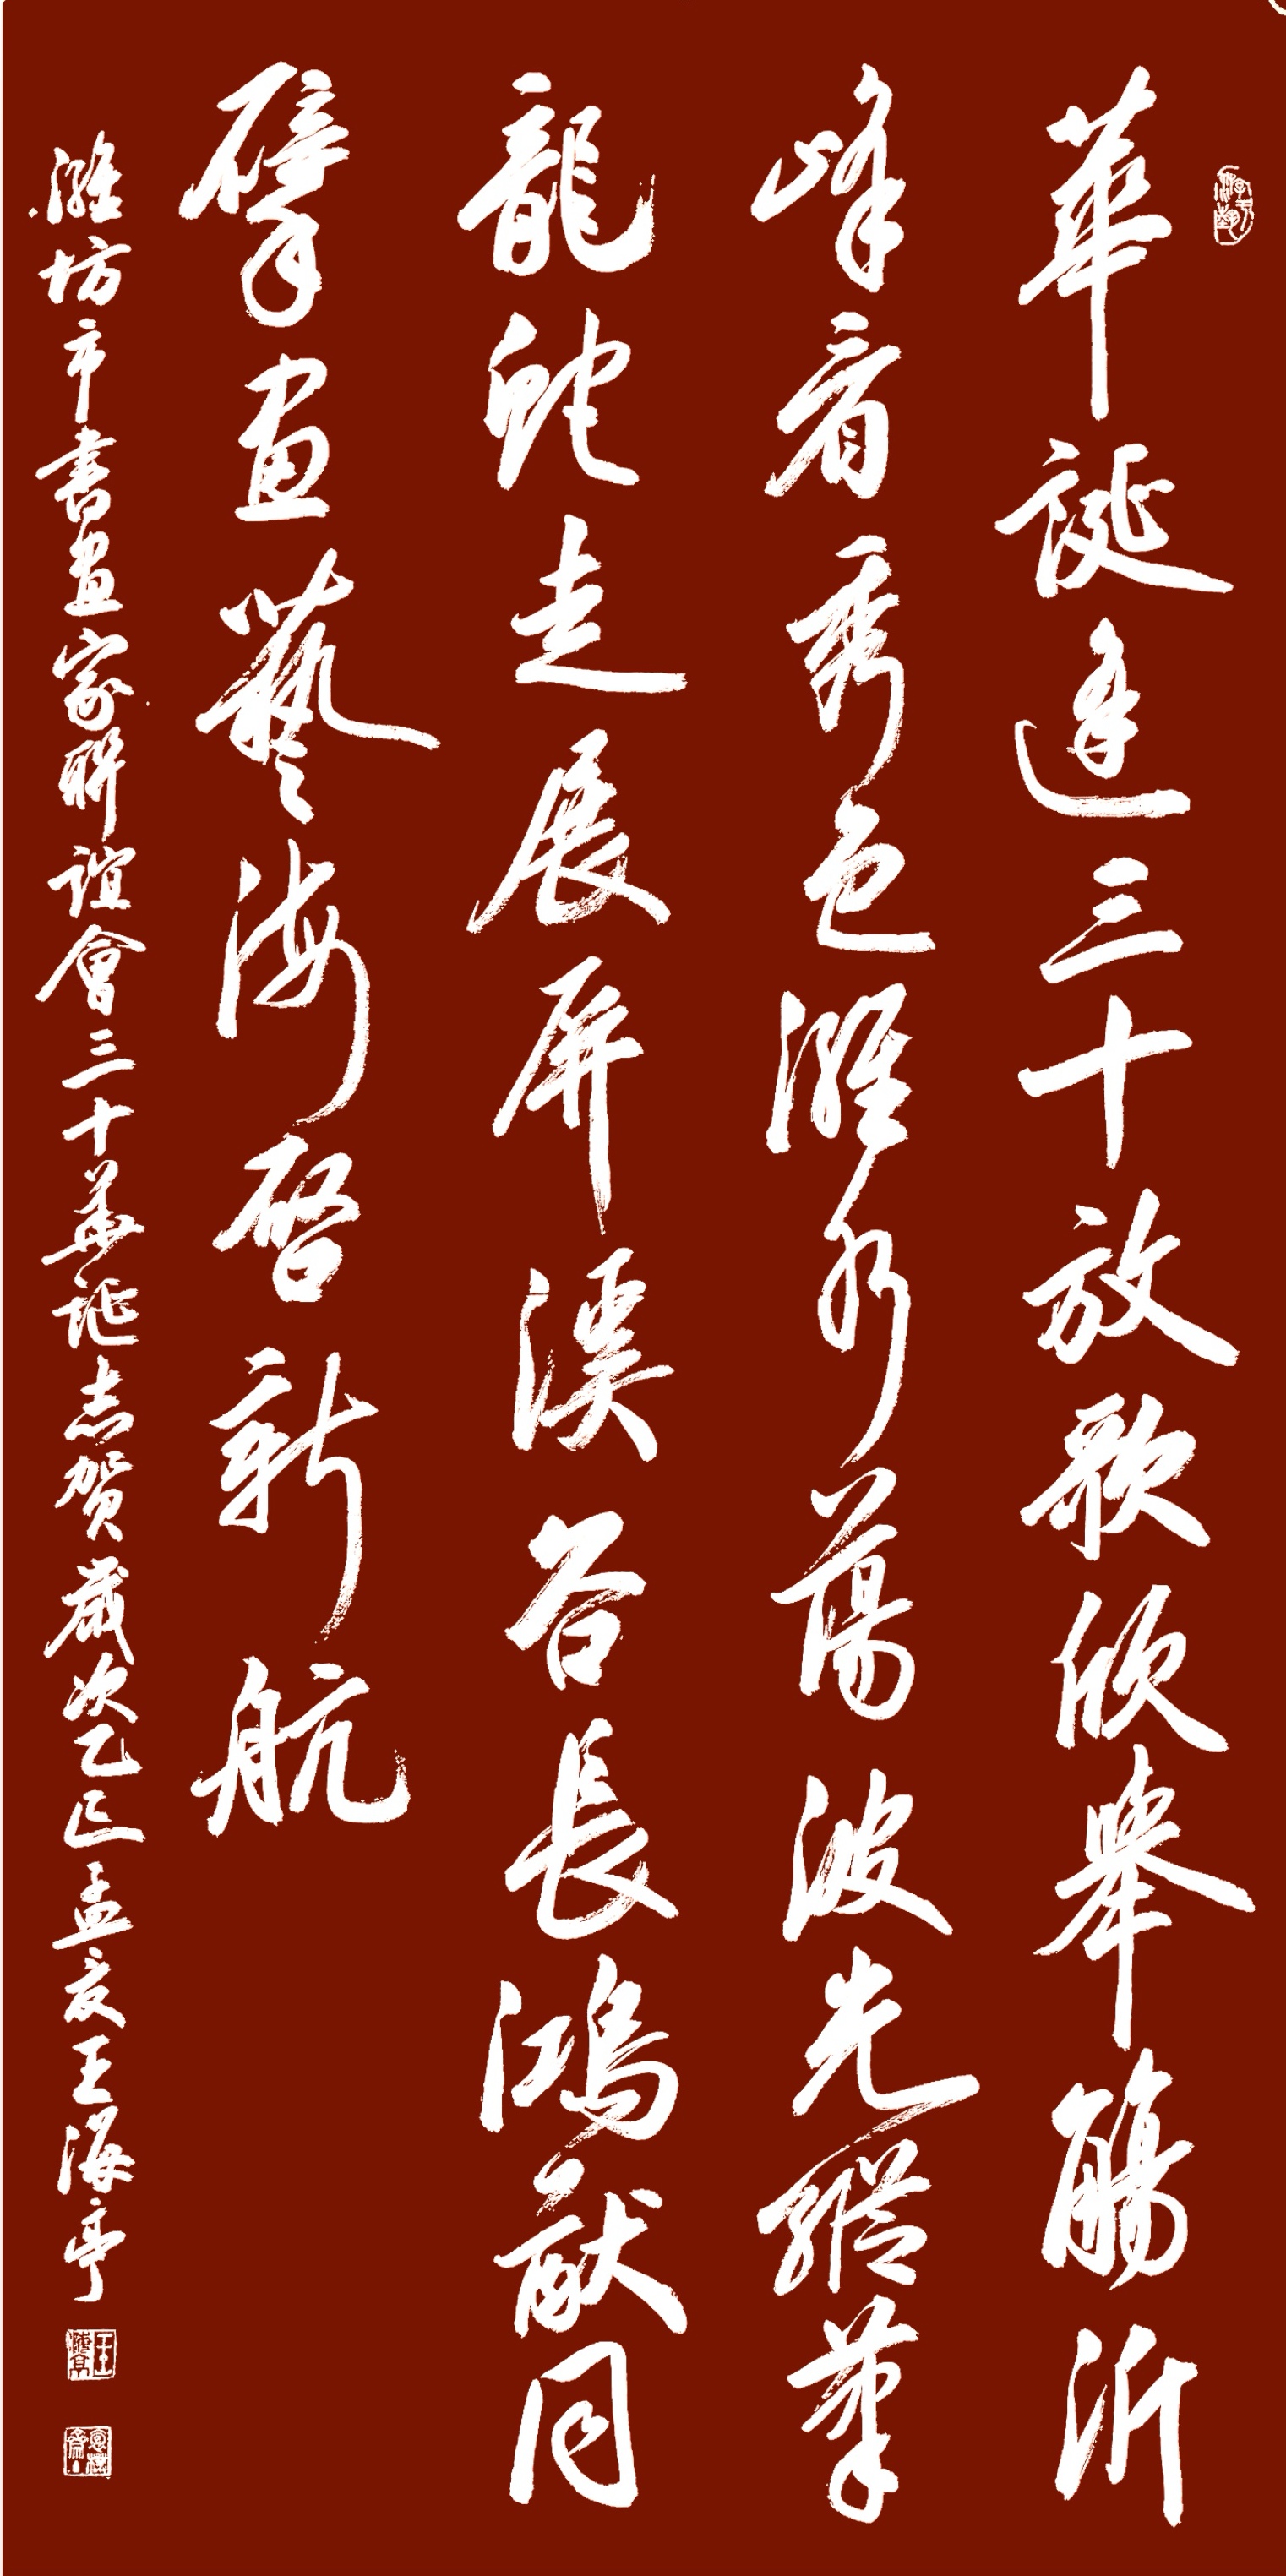 華誕逢三十放歌欣舉觴沂
峰看秀色濰水蕩波光縱筆
龍蛇走展屏溪谷長鴻猷同
擘畫藝海啓新航
濰坊市書畫家聯誼會三十華誕志賀歲次乙巳孟夏王海亭